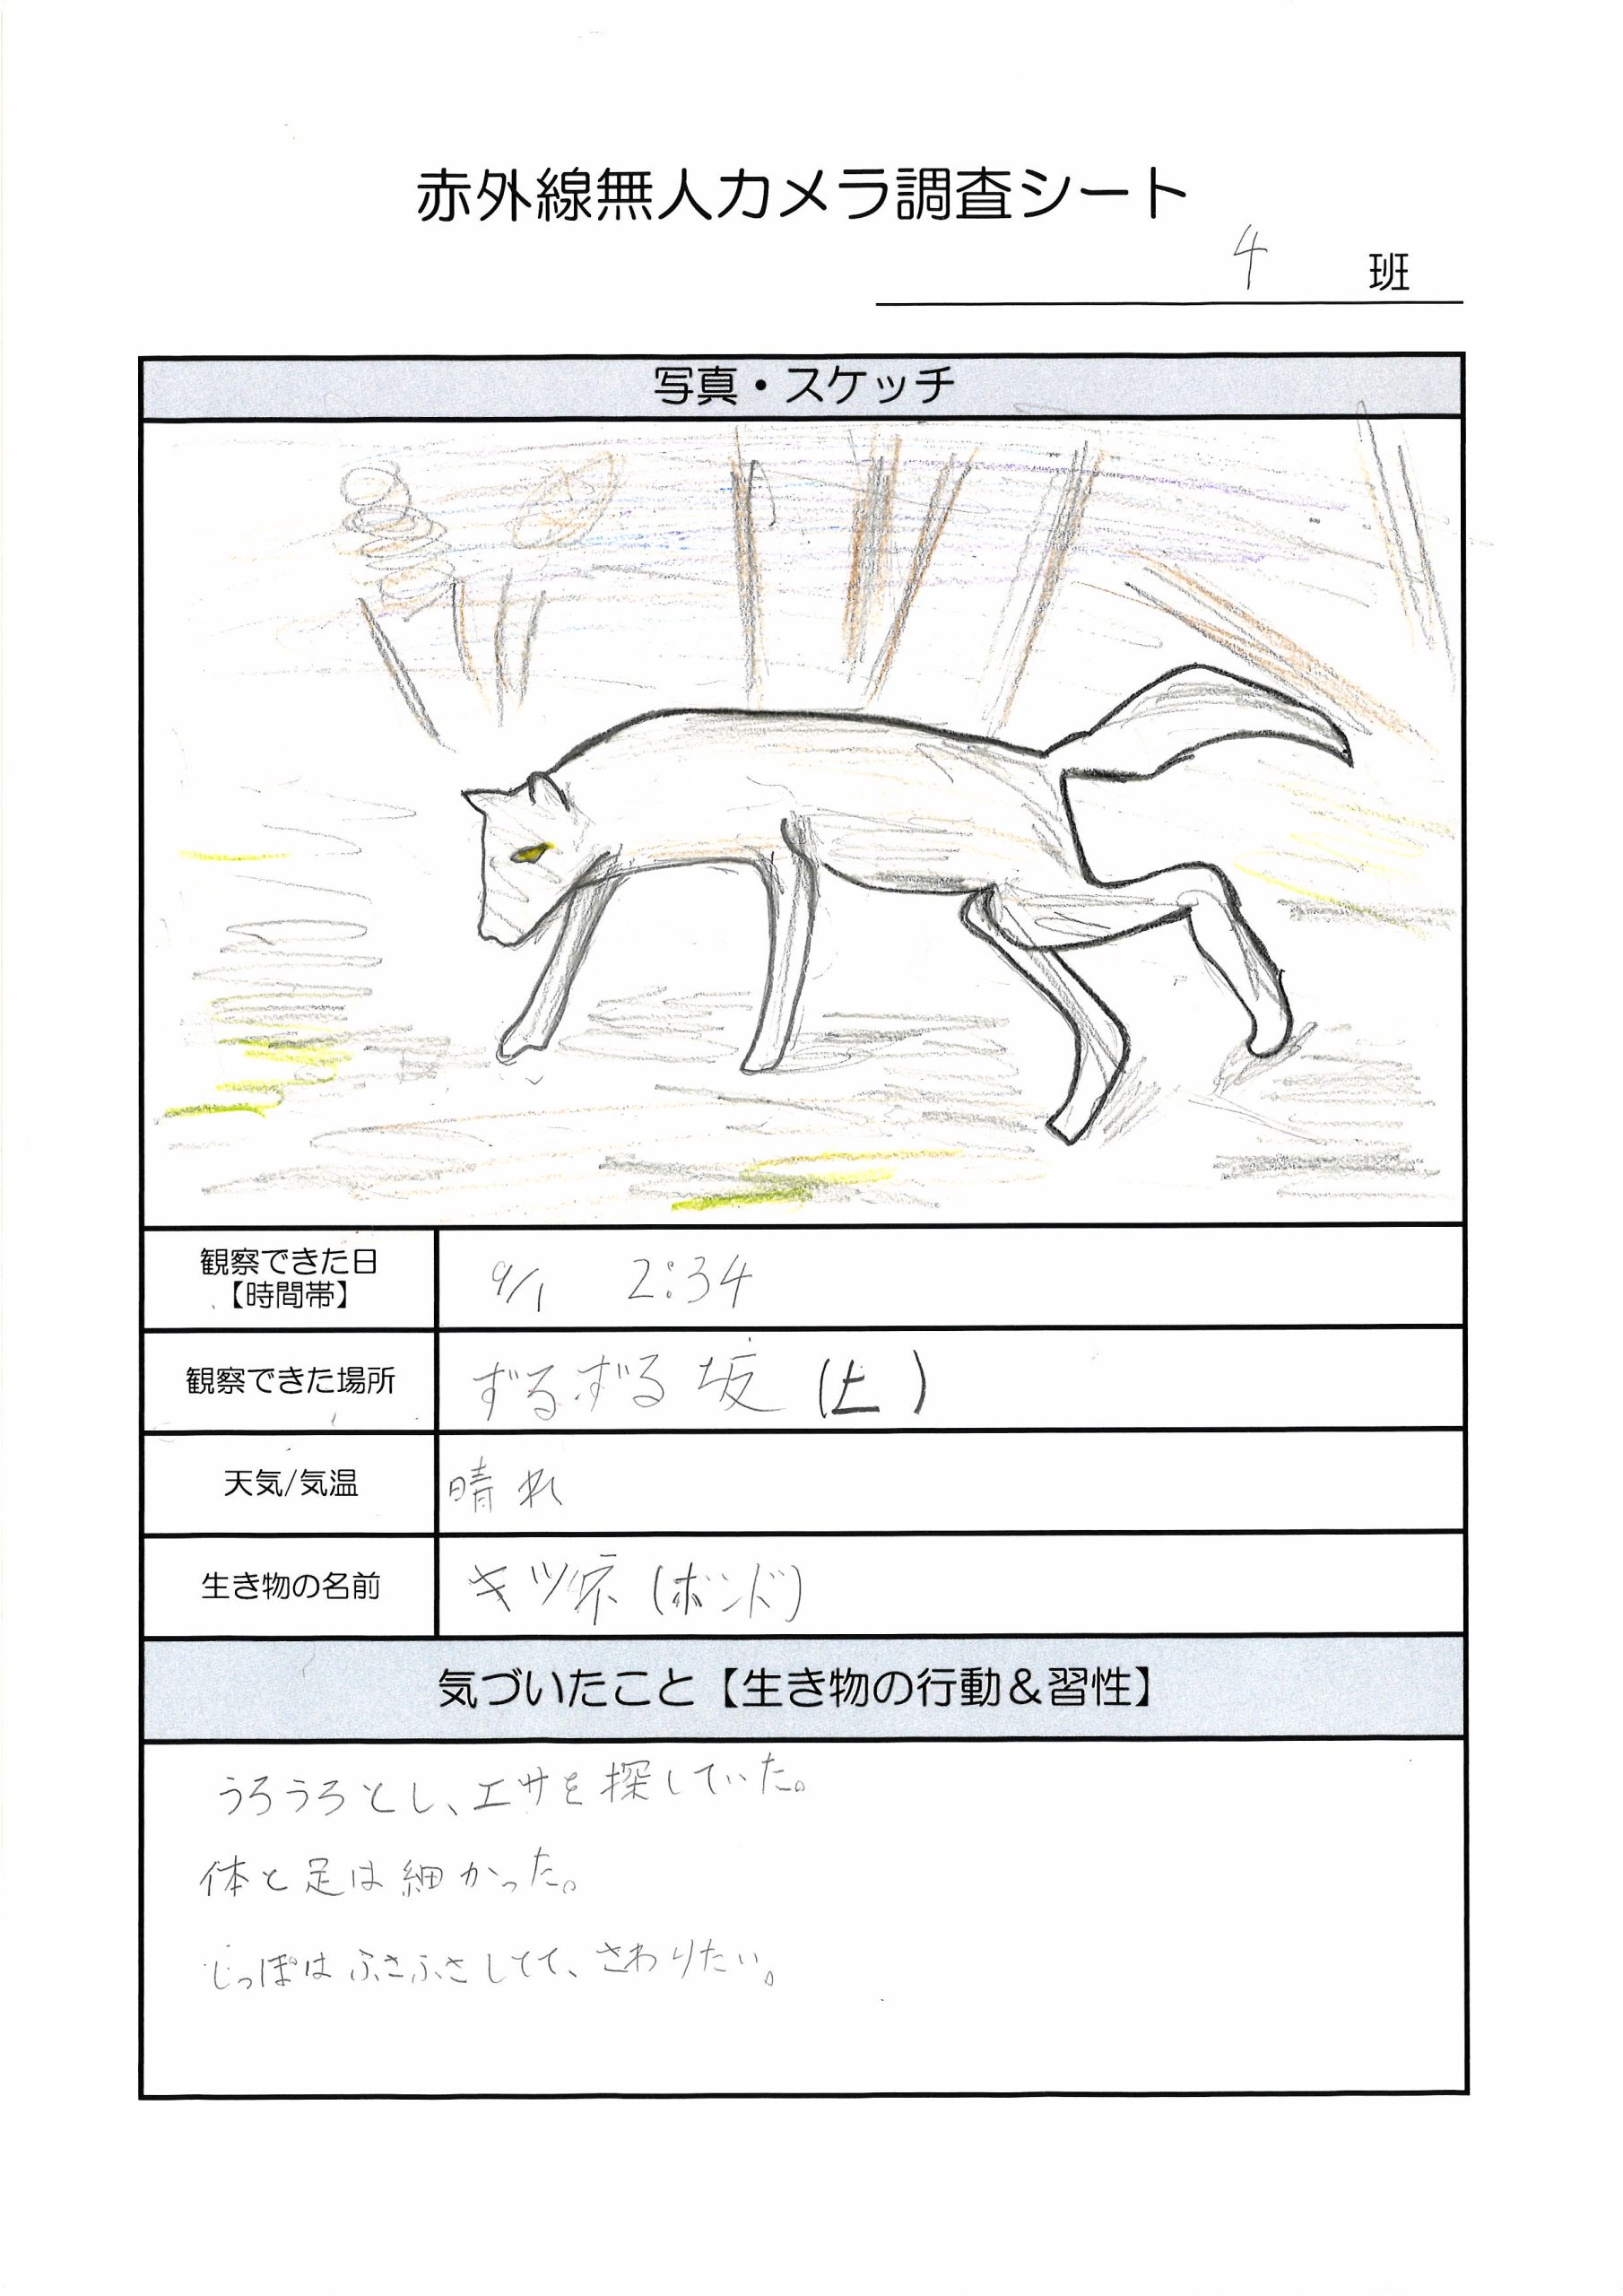 赤外線無人カメラ調査シート
4 班
写真・スケッチ
観察できた日
【時間帯】
9/1 2:34
観察できた場所
ずるずる坂(上)
天気/気温
晴れ
生き物の名前
キツネ(ボンド)
気づいたこと【生き物の行動&習性】
うろうろとし、エサを探していた。
体と足は細かった。
しっぽはふさふさしてて、さわりたい。